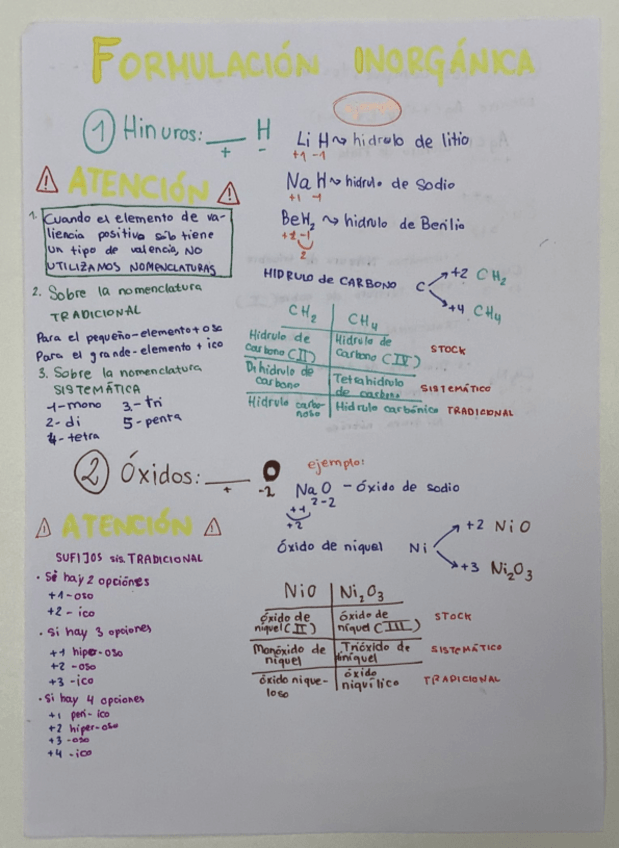 FORMULACIÓN INORGÁNICA
① Hinuros: ___ H
+ -
Li H ~> hidrulo de litio
+1 -1
Na H ~> hidrulo de Sodio
+1 -1
BeH₂ ~> hidrulo de Berilio
+2 -1
2
HIDRULO DE CARBONO C +2 CH₂
+4 CH₄
⚠ ATENCIÓN ⚠
1. Cuando el elemento de va-
liencia positiva sólo tiene
un tipo de valencia, NO
UTILIZAMOS NOMENCLATURAS
2. Sobre la nomenclatura
TRADICIONAL
Para el pequeño-elemento + oso
Para el grande-elemento + ico
3. Sobre la nomenclatura
SISTEMÁTICA
1-mono 3-tri
2-di 5-penta
4-tetra
CH₂ CH₄
Hidrulo de carbono (II) Hidrulo de carbono (IV) STOCK
Dihidrulo de carbono Tetrahidrulo de carbono SISTEMÁTICO
Hidrulo carbo-noso Hidrulo carbónico TRADICIONAL
② Óxidos: ___ O
+ -2
ejemplo:
Na O - óxido de sodio
+1 2-2
+2
óxido de niquel Ni +2 NiO
+3 Ni₂O₃
⚠ ATENCIÓN ⚠
SUFIJOS sis. TRADICIONAL
· Si hay 2 opciónes
+1-oso
+2-ico
· Si hay 3 opciones
+1 hiper-oso
+2 -oso
+3 -ico
· Si hay 4 opciones
+1 peri-ico
+2 hiper-oso
+3 -oso
+4 -ico
NiO Ni₂O₃
óxido de niquel (II) óxido de niquel (III) STOCK
Monóxido de niquel Trióxido de niquel SISTEMÁTICO
óxido nique-loso óxido niquílico TRADICIONAL